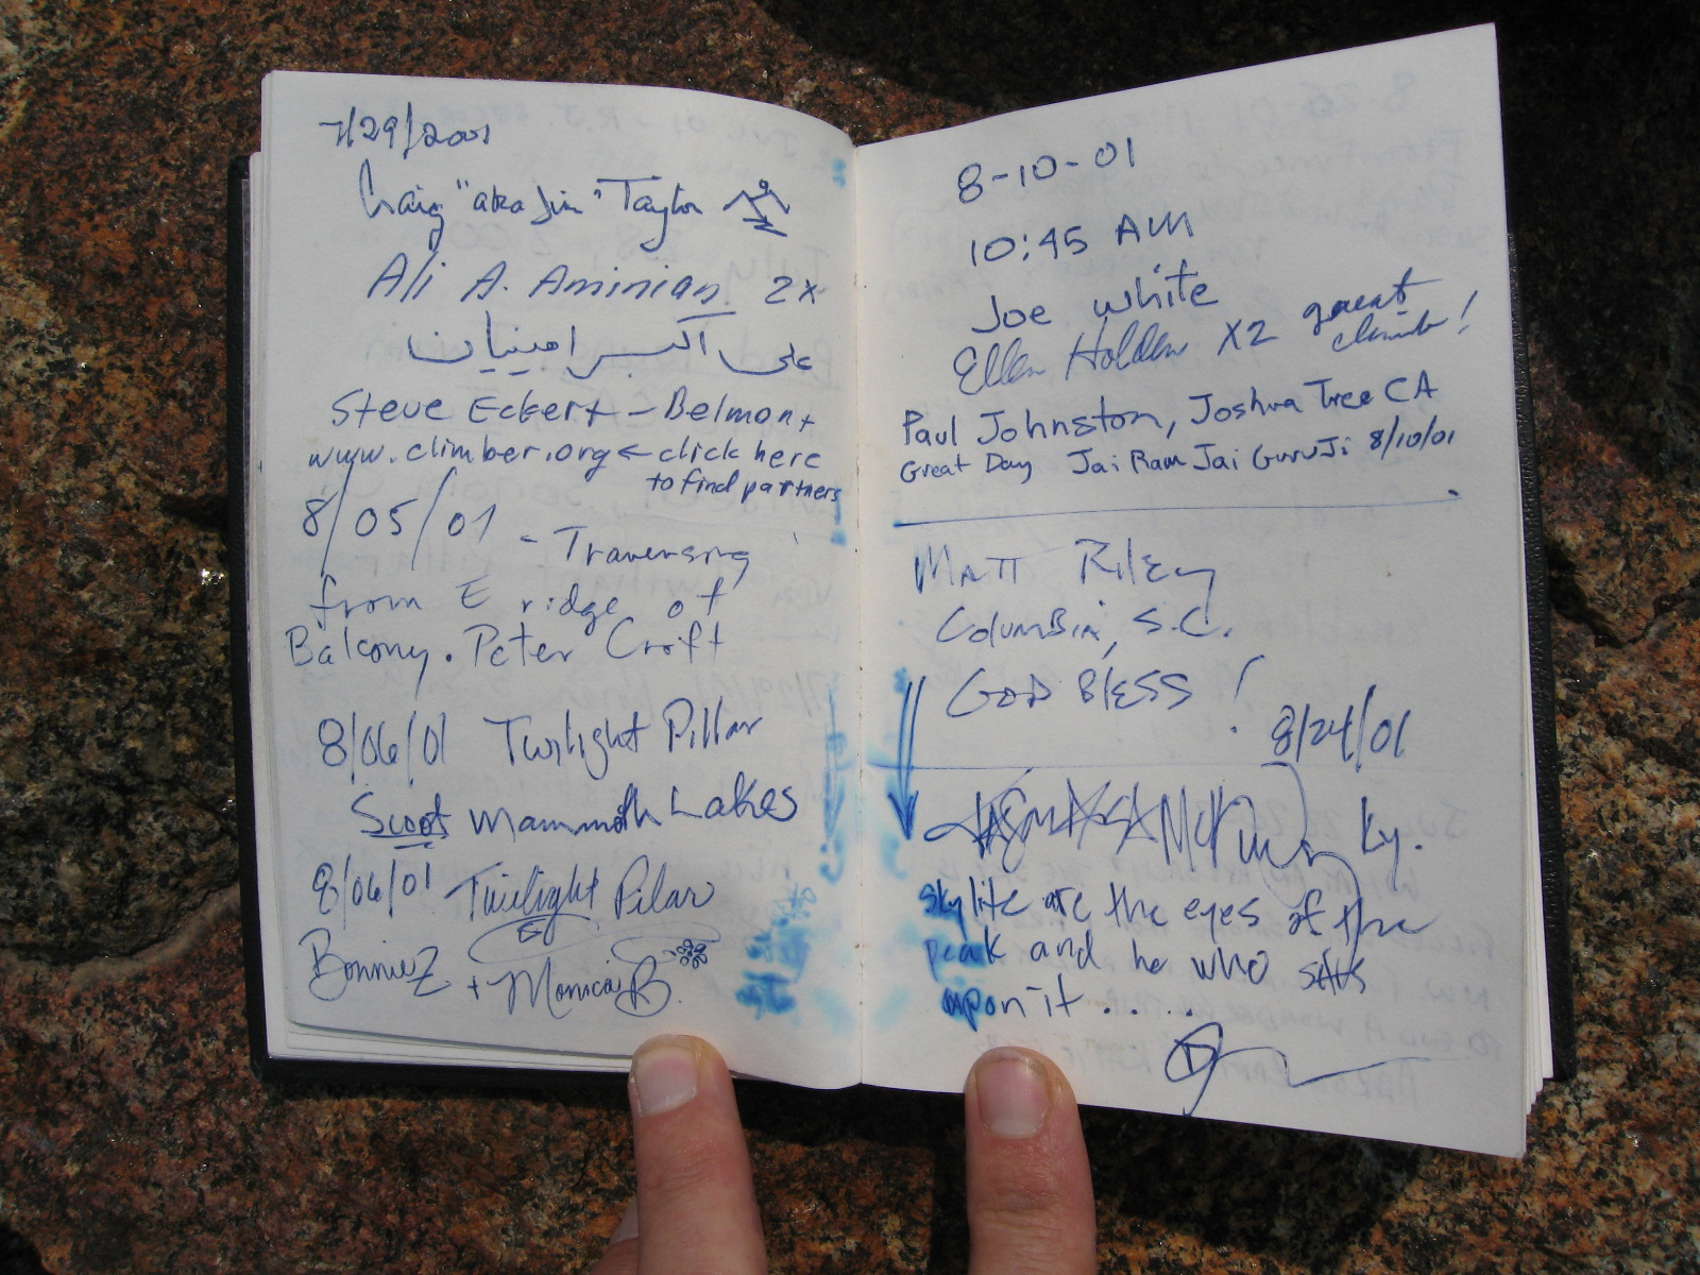 7/29/2001
Craig "aka Jim" Taylor
Ali A. Aminian 2x
علی اکبر امینیان
Steve Eckert - Belmont
www.climber.org ← click here
to find partners
8/05/01 - Traversing
from E ridge of
Balcony. Peter Croft
8/06/01 Twilight Pillar
Scoot Mammoth Lakes
8/06/01 Twilight Pilar
Bonnie Z + Monica B.
8-10-01
10:45 AM
Joe white
Ellen Holden X2 great
climb!
Paul Johnston, Joshua Tree CA
Great Day Jai Ram Jai GuruJi 8/10/01
Matt Riley
Columbia, S.C.
God Bless!
8/24/01
Ky.
skylite are the eyes of the
peak and he who sits
upon it .....